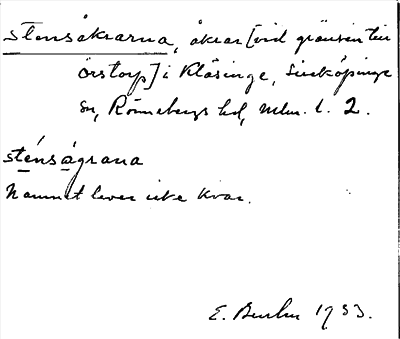 Stensåkrarna, åkrar [vid gränsen till
Örstorp] i Klåsinge, Simköpinge
sn, Rönnebergs hd, Mlm. l. 2.
sténságrana
Namnet lever icke kvar.
E. 1933.